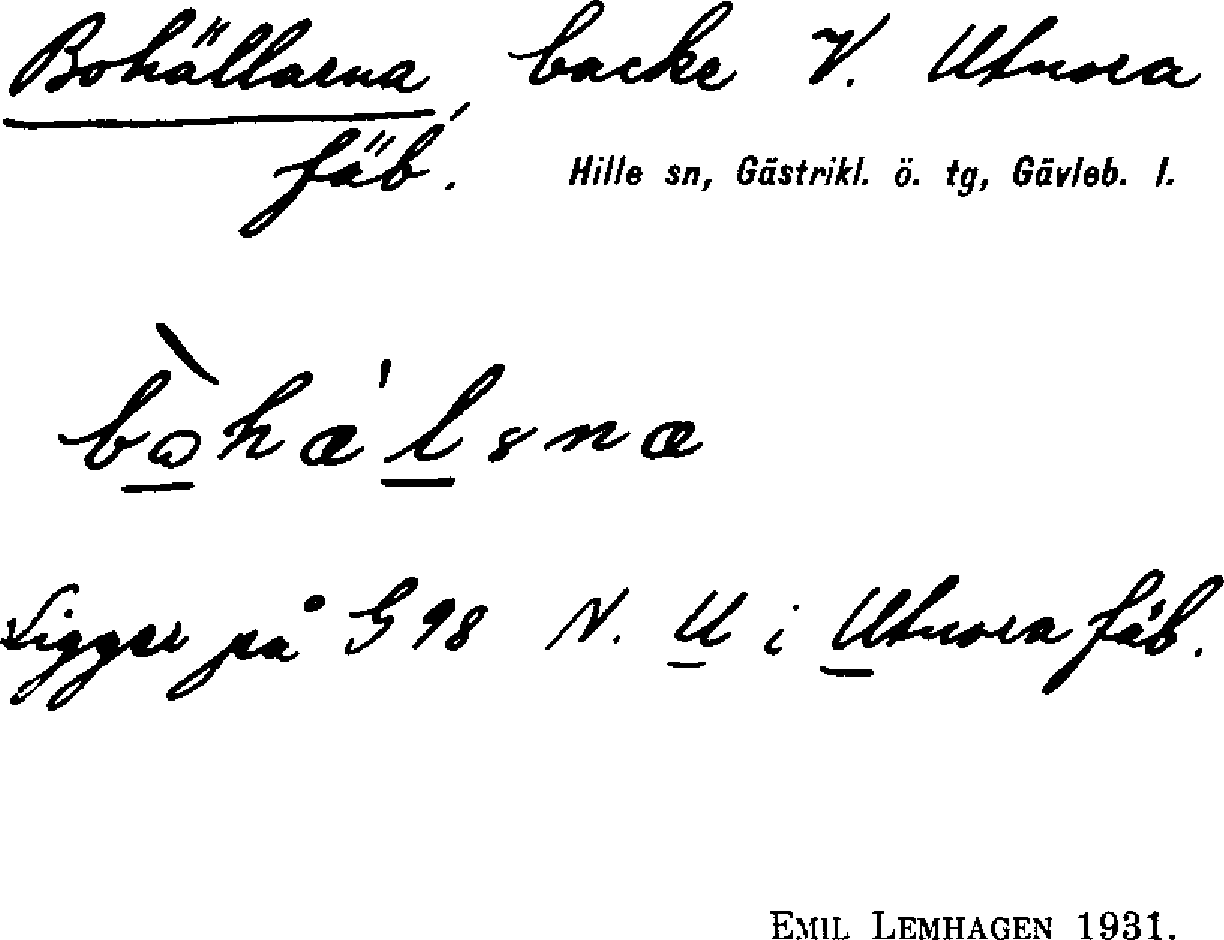 Bohällarna, backe V. Utnora
fäb. Hille sn, Gästrikl. ö. tg, Gävleb. l.
Ligger på G 98 N. U i Utnora fäb.
EMIL LEMHAGEN 1931.